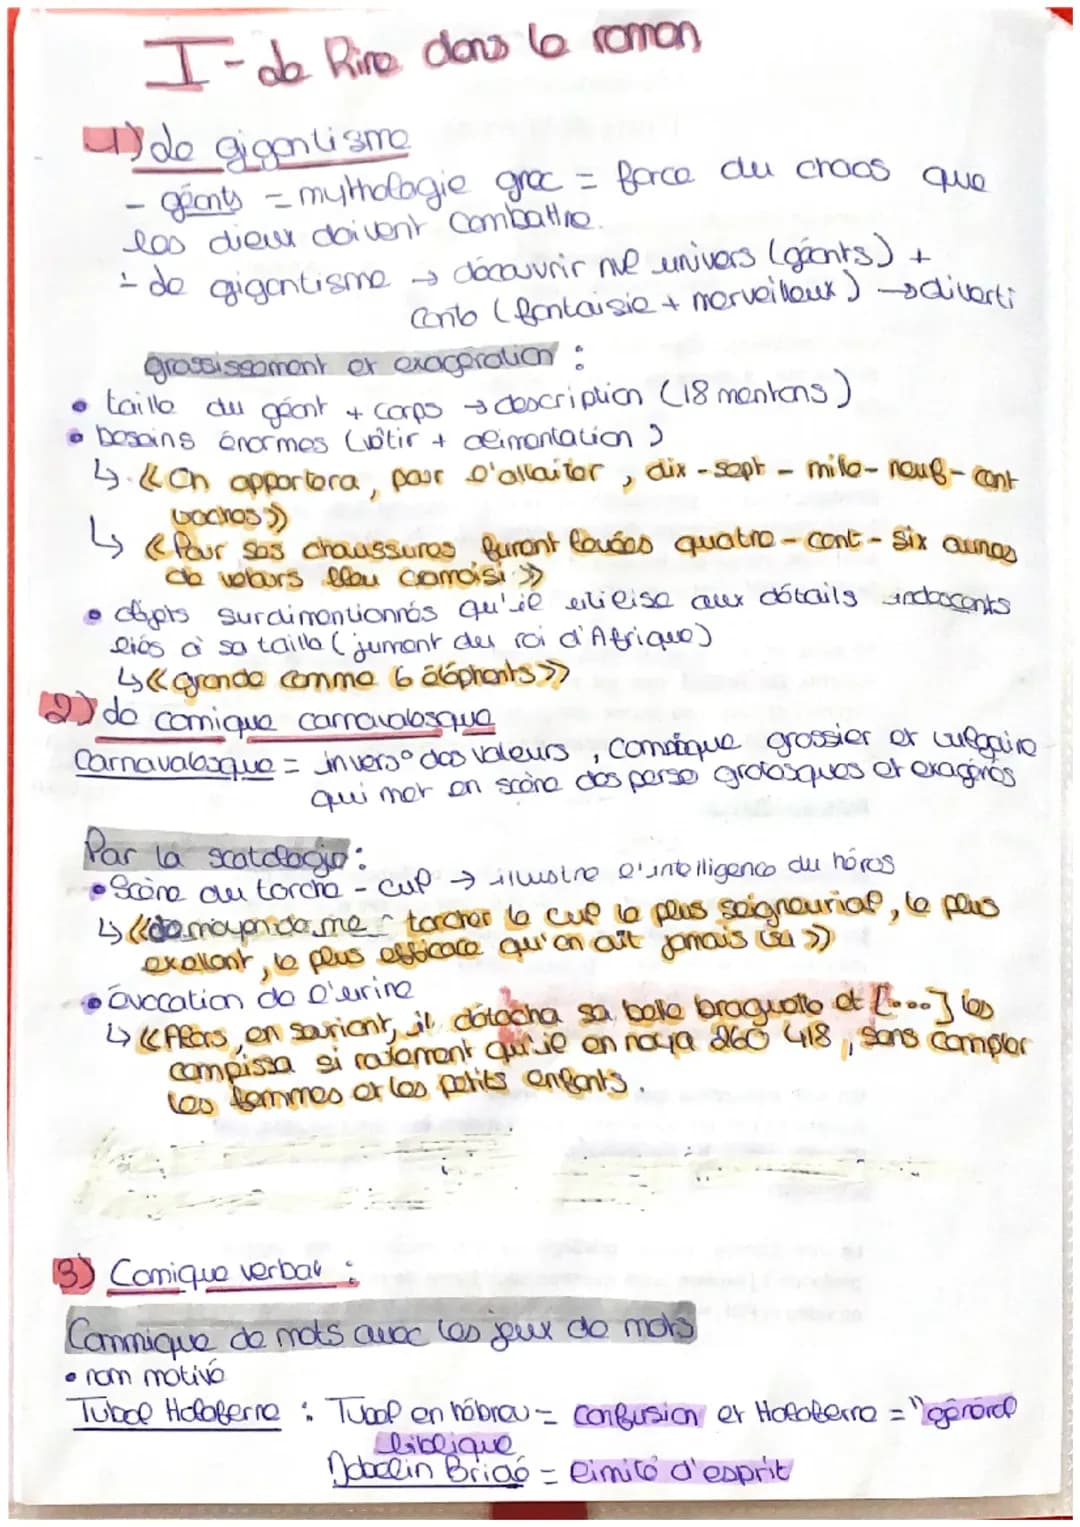 I - Le Rire dans le roman
1) Le gigantisme
- géants = mythologie grec = force du chaos que
les dieux doivent combattre.
- Le gigantisme → découvrir nvl univers (géants) +
conte (fantaisie + merveilleux) → diverti
grossissement et exagération :
• taille du géant + corps → description (18 mentons)
• besoins énormes (vêtir + alimentation)
↳ « On apporta, pour l'allaiter, dix-sept-mile-neuf-cent
vaches »
↳ « Pour ses chaussures furent louées quatre-cent-six aunes
de velours bleu cramoisi »
• objets surdimentionnés qu'il utilise aux détails indescents
liés à sa taille (jument du roi d'Afrique)
↳ « grande comme 6 éléphants »
2) Le comique carnavalesque
Carnavalesque = invers° des valeurs, comique grossier et vulgaire
qui met en scène des perso grotesques et exagérés
Par la scatologie :
• Scène du torche-cul → illustre l'intelligence du héros
↳ « Le moyen de me torcher le cul le plus seigneurial, le plus
exellant, le plus efficace qu'on ait jamais vu »
• évocation de l'urine
↳ « Alors, en souriant, il détacha sa belle braguette et [...] les
compissa si raidement qu'il en noya 260 418, sans compter
les femmes et les petits enfants.
3) Comique verbal :
Commique de mots avec les jeux de mots
• nom motivé
Tubal Holoferne : Tubal en hébreu = confusion et Holoferne = "général
biblique
Jobelin Bridé = limité d'esprit